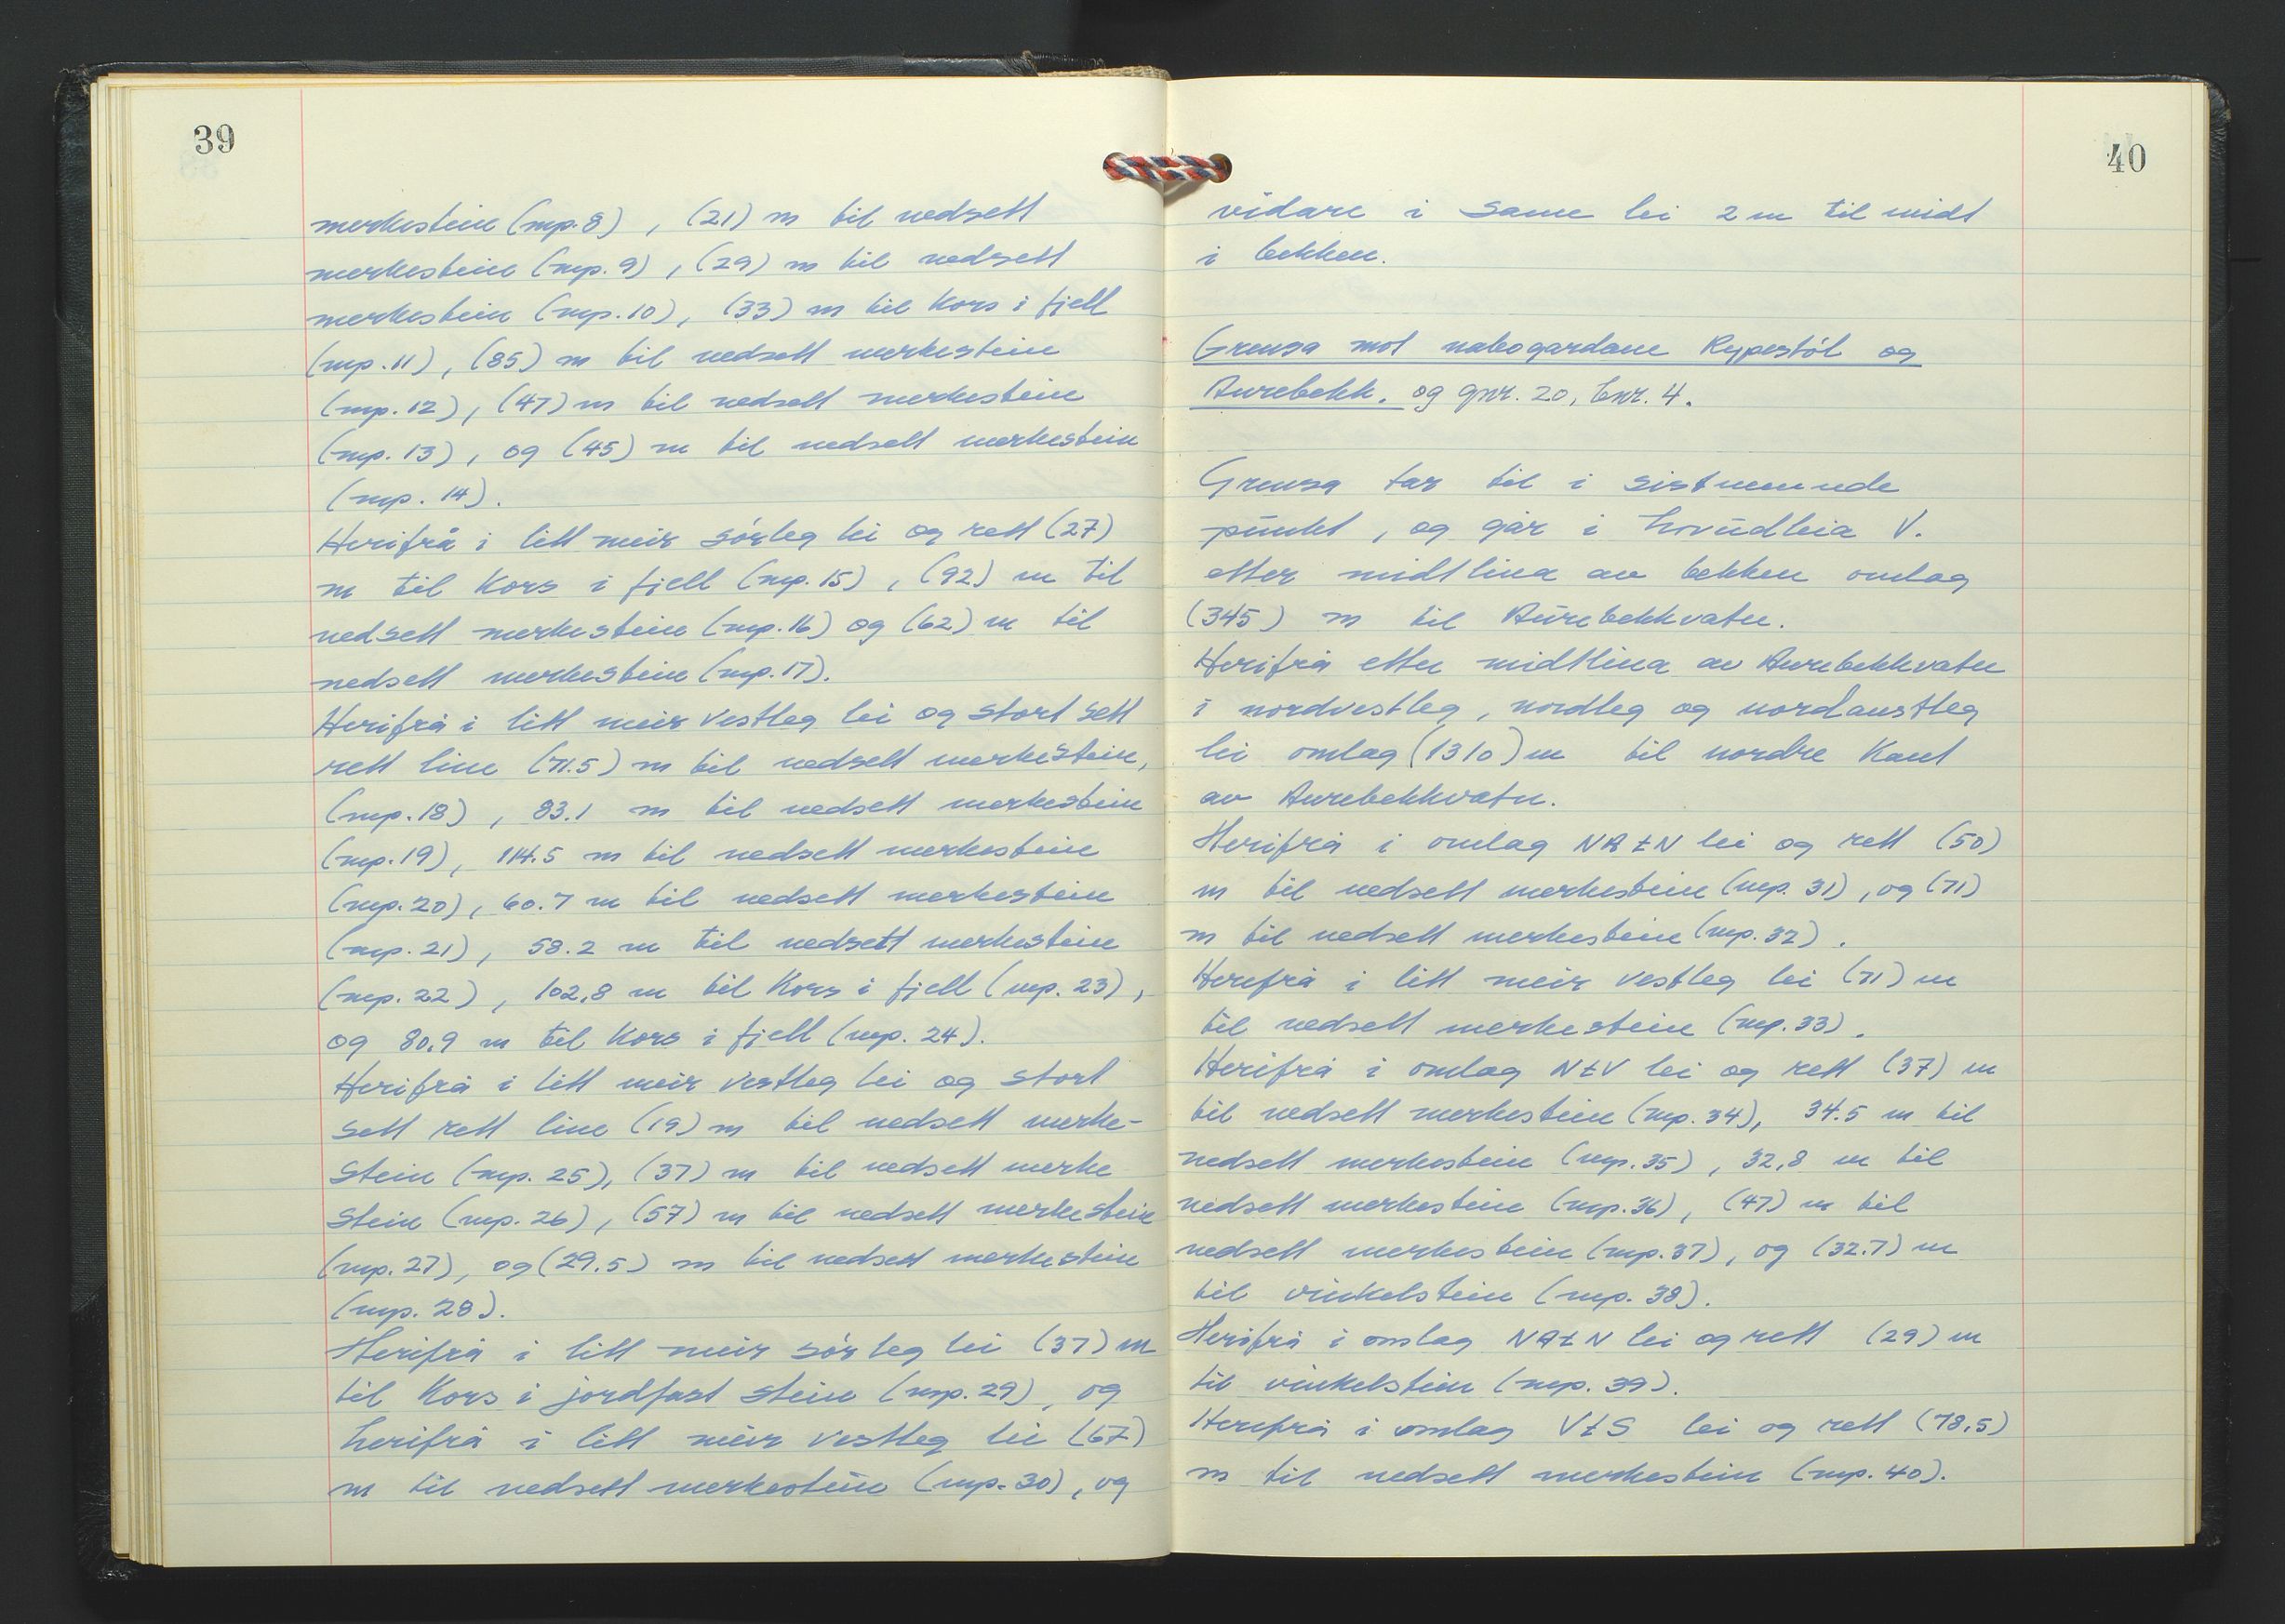 39
merkestein (mp. 8) , (21) m til nedsett
merkestein (mp. 9) , (29) m til nedsett
merkestein (mp. 10) , (33) m til kors i fjell
(mp. 11) , (85) m til nedsett merkestein
(mp. 12) , (47) m til nedsett merkestein
(mp. 13) , og (45) m til nedsett merkestein
(mp. 14) .
Herifrå i litt meir sørleg lei og rett (27)
m til kors i fjell (mp. 15) , (92) m til
nedsett merkestein (mp. 16) og (62) m til
nedsett merkestein (mp. 17).
Herifrå i litt meir vestleg lei og stort sett
rett line (71.5) m til nedsett merkestein,
(mp. 18) , 83.1 m til nedsett merkestein
(mp. 19) , 114.5 m til nedsett merkestein
(mp. 20) , 60.7 m til nedsett merkestein
(mp. 21) , 58.2 m til nedsett merkestein
(mp. 22) , 102,8 m til kors i fjell (mp. 23) ,
og 80,9 m til kors i fjell (mp. 24).
Herifrå i litt meir vestleg lei og stort
sett rett line (19) m til nedsett merke-
stein (mp. 25), (37) m til nedsett merke
stein (mp. 26) , (57) m til nedsett merkestein
(mp. 27) , og (29.5) m til nedsett merkestein
(mp. 28).
Herifrå i litt meir sørleg lei (37) m
til kors i jordfast stein (mp. 29) , og
herifrå i litt meir vestleg lei (67)
m til nedsett merkestein (mp. 30) , og
40
vidare i same lei 2 m til midt
i bekken.
Grensa mot nabogardane Rypestøl og
Aurebekk. og gnr. 20, bnr. 4.
Grensa tar til i sistnemnde
punkt , og går i hovudleia V.
etter midtlina av bekken omlag
(345) m til Aurebekkvatn.
Herifrå etter midtlina av Aurebekkvatn
i nordvestleg , nordleg og nordaustleg
lei omlag (1310) m til nordre kant
av Aurebekkvatn.
Herifrå i omlag NAtN lei og rett (50)
m til nedsett merkestein (mp. 31) , og (71)
m til nedsett merkestein (mp. 32) .
Herifrå i litt meir vestleg lei (71) m
til nedsett merkestein (mp. 33) .
Herifrå i omlag NtV lei og rett (37) m
til nedsett merkestein (mp. 34), 34.5 m til
nedsett merkestein (mp. 35) , 32,8 m til
nedsett merkestein (mp. 36) , (47) m til
nedsett merkestein (mp. 37) , og (32.7) m
til vinkelstein (mp. 38).
Herifrå i omlag NAtN lei og rett (29) m
til vinkelstein (mp. 39).
Herifrå i omlag VtS lei og rett (78,5)
m til nedsett merkestein (mp. 40).